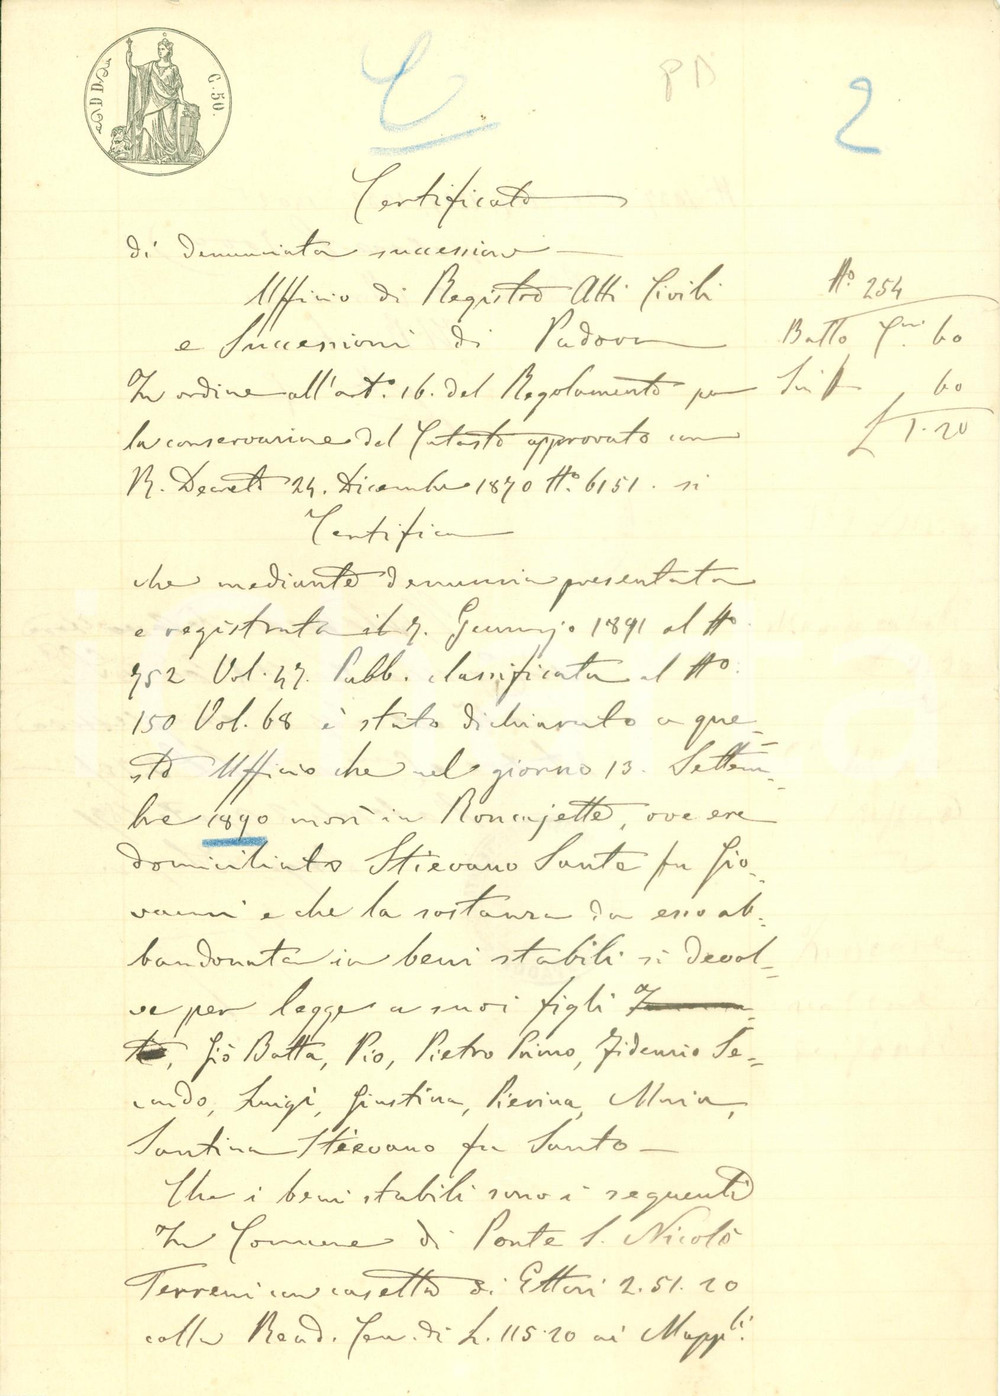 C. 50.
C.
PD
2
Certificato
di denunciata successione
Ufficio di Registro Atti Civili
e Successioni di Padova
In ordine all'art.° 16. del Regolamento per
la conservazione del Catasto approvato con
R. Decreto 24. Dicembre 1870 N.° 6151. si
Certifica
che mediante denuncia presentata
e registrata il 7. Gennajo 1891 al N.°
752 Vol. 47. Pubb. classificata al N.°
150 Vol. 68 è stato dichiarato a que-
sto Ufficio che nel giorno 13. Settem-
bre 1890 morì in Roncajette, ove era
domiciliato Stievano Sante fu Gio-
vanni e che la sostanza da esso ab-
bandonata in beni stabili si devol-
ve per legge a suoi figli
Giò Batta, Pio, Pietro Primo, Fidenzio Se-
condo, Luigi, Giustina, Pierina, Maria,
Santina Stievano fu Santo
Che i beni stabili sono i seguenti
In Comune di Ponte S. Nicolò
Terreni con casetta di Ettari 2.51.20
colla Rend. Cen. di L. 115.20 ai Mapp.li
N.° 254
Batto 60
60
L 1.20